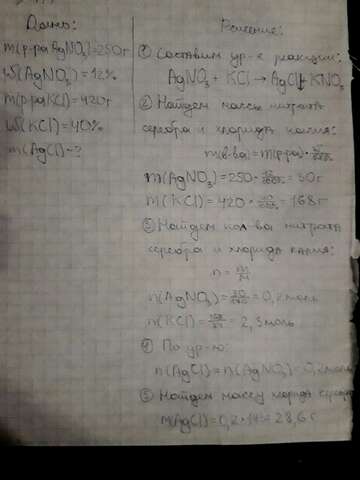 Дано:
m(р-ра AgNO₃)=250г
W(AgNO₃)=12%
m(р-ра KCl)=420г
W(KCl)=40%
m(AgCl)-?
Решение:
① Составим ур-е реакции:
AgNO₃ + KCl → AgCl↓ + KNO₃
② Найдем массы нитрата
серебра и хлорида калия:
m(в-ва)=m(р-ра)·
m(AgNO₃)=250· =30г
m(KCl)=420· =168г
③ Найдем кол-ва нитрата
серебра и хлорида калия:
n = m/M
n(AgNO₃)= =0,2моль
n(KCl)= = 2,3моль
④ По ур-ю:
n(AgCl)=n(AgNO₃)=0,2моль
⑤ Найдем массу серебра
m(AgCl)=0,2· =28,6г